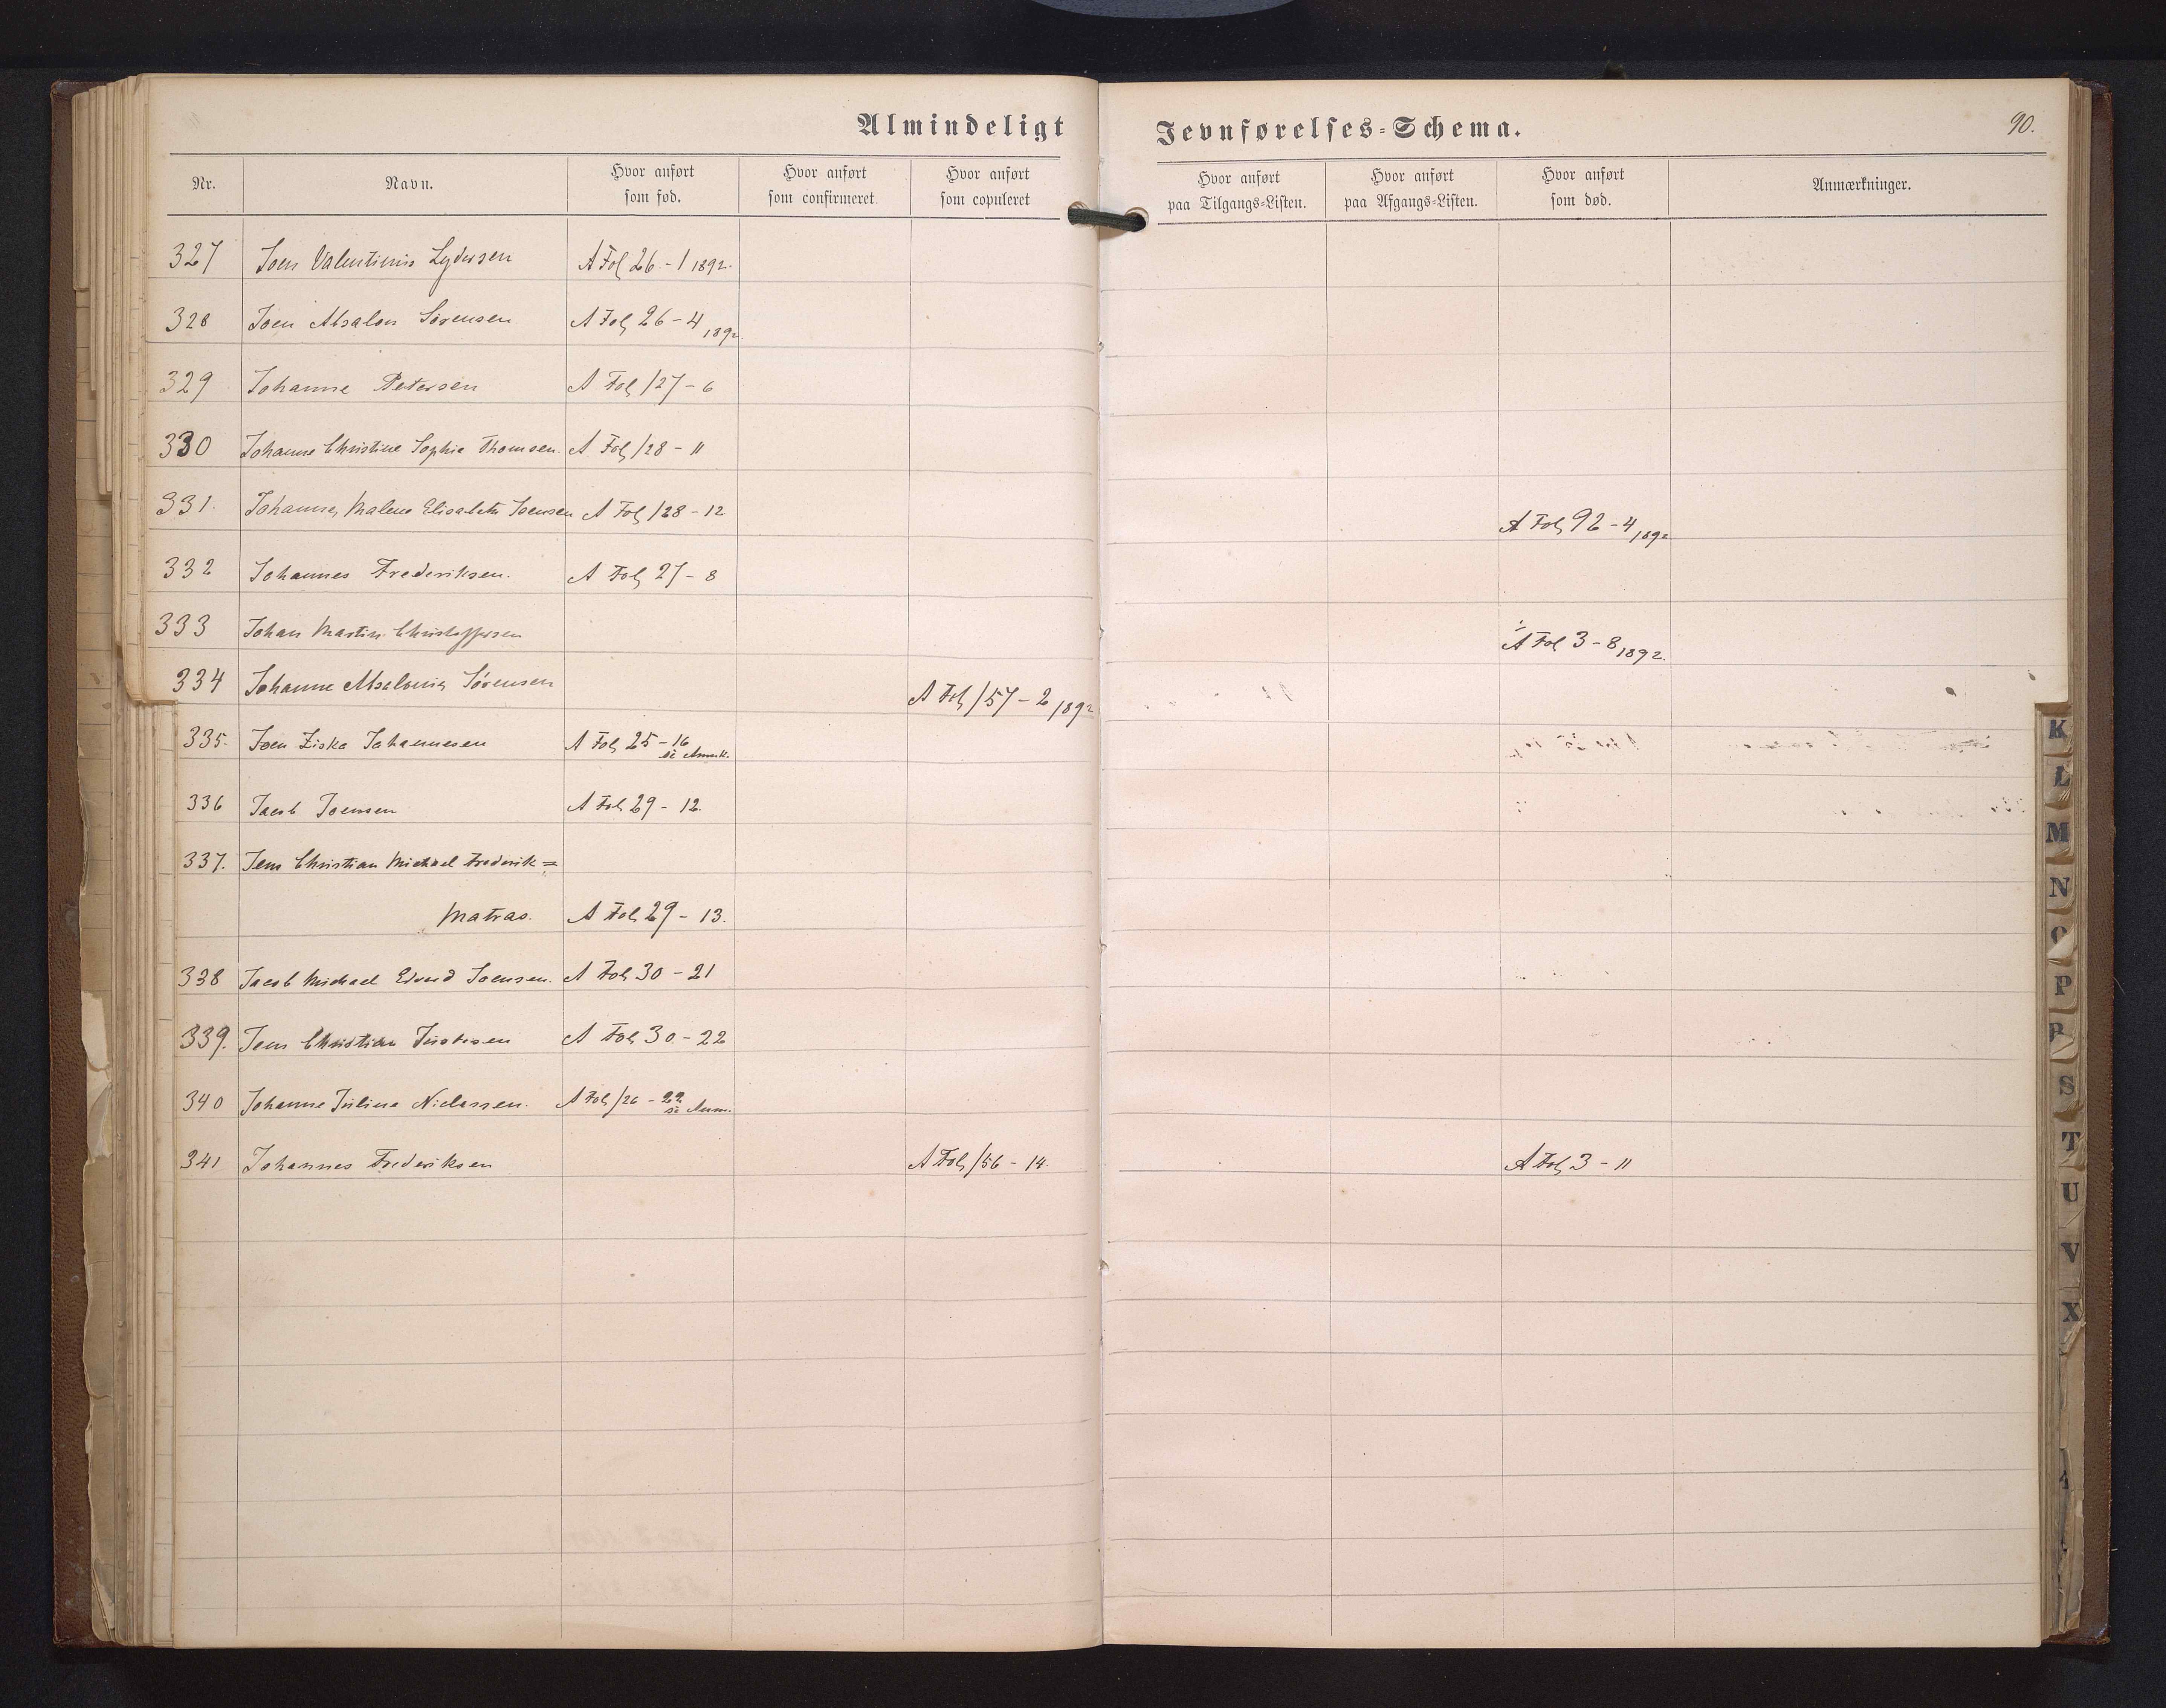 Almindeligt Jevnførelses=Schema.
90.
Nr. Navn. Hvor anført som fød. Hvor anført som confirmeret. Hvor anført som copuleret Hvor anført paa Tilgangs=Listen. Hvor anført paa Afgangs=Listen. Hvor anført som død. Anmærkninger.
327 Joen Valentinus Lydersen A Fol 26 - 1 1892.
328 Joen Absalon Sørensen A Fol 26 - 4 1892
329 Johanne Petersen A Fol 127 - 6
330 Johanne Christine Sophie Thomsen. A Fol 128 - 11
331. Johanne Malene Elisabeth Joensen A Fol 128 - 12 A Fol 92 - 4 1892
332 Johannes Frederiksen. A Fol 27 - 8
333 Johan Martin Christoffersen A Fol 3 - 8 1892.
334 Johanne Absalonia Sørensen A Fol 157 - 2 1892
335. Joen Ziska Johannesen A Fol 25 - 16 se Anmk.
336 Jacob Joensen A Fol 29 - 12.
337. Jens Christian Michael Frederik =
Matras. A Fol 29 - 13.
338 Jacob Michael Eivind Joensen. A Fol 30 - 21
339. Jens Christian Justesen A Fol 30 - 22
340 Johanne Juline Niclassen. A Fol 126 - 22 se Anm.
341 Johannes Frederiksen A Fol 156 - 14. A Fol 3 - 11
K
L
M
N
O
P
R
S
T
U
V
X